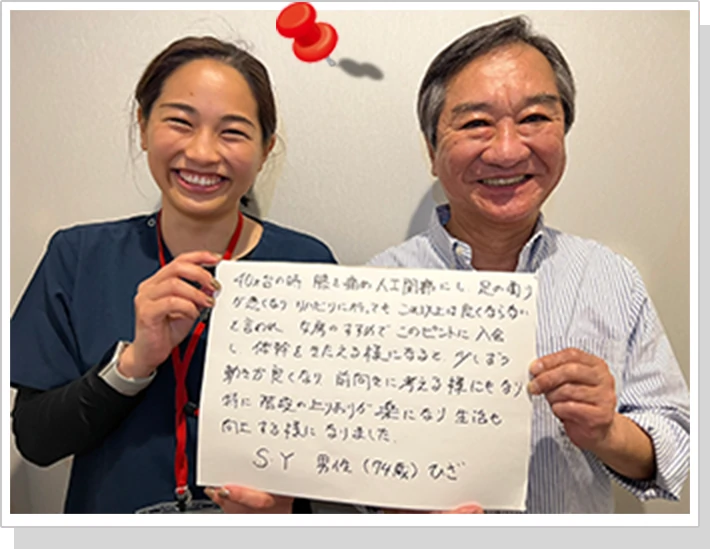 40才台の時 膝を痛め人工関節にし、足の向う
が悪くなり リハビリに行っても これ以上は良くならない
と言われ 女房のすすめで このピントに 入会
し 体幹をきたえる様になると、少しずつ
動きが良くなり 前向きに考える様にもなり
特に 階段の上り下りが 楽になり 生活も
向上する様になりました。
S.Y 男性 (74歳) ひざ